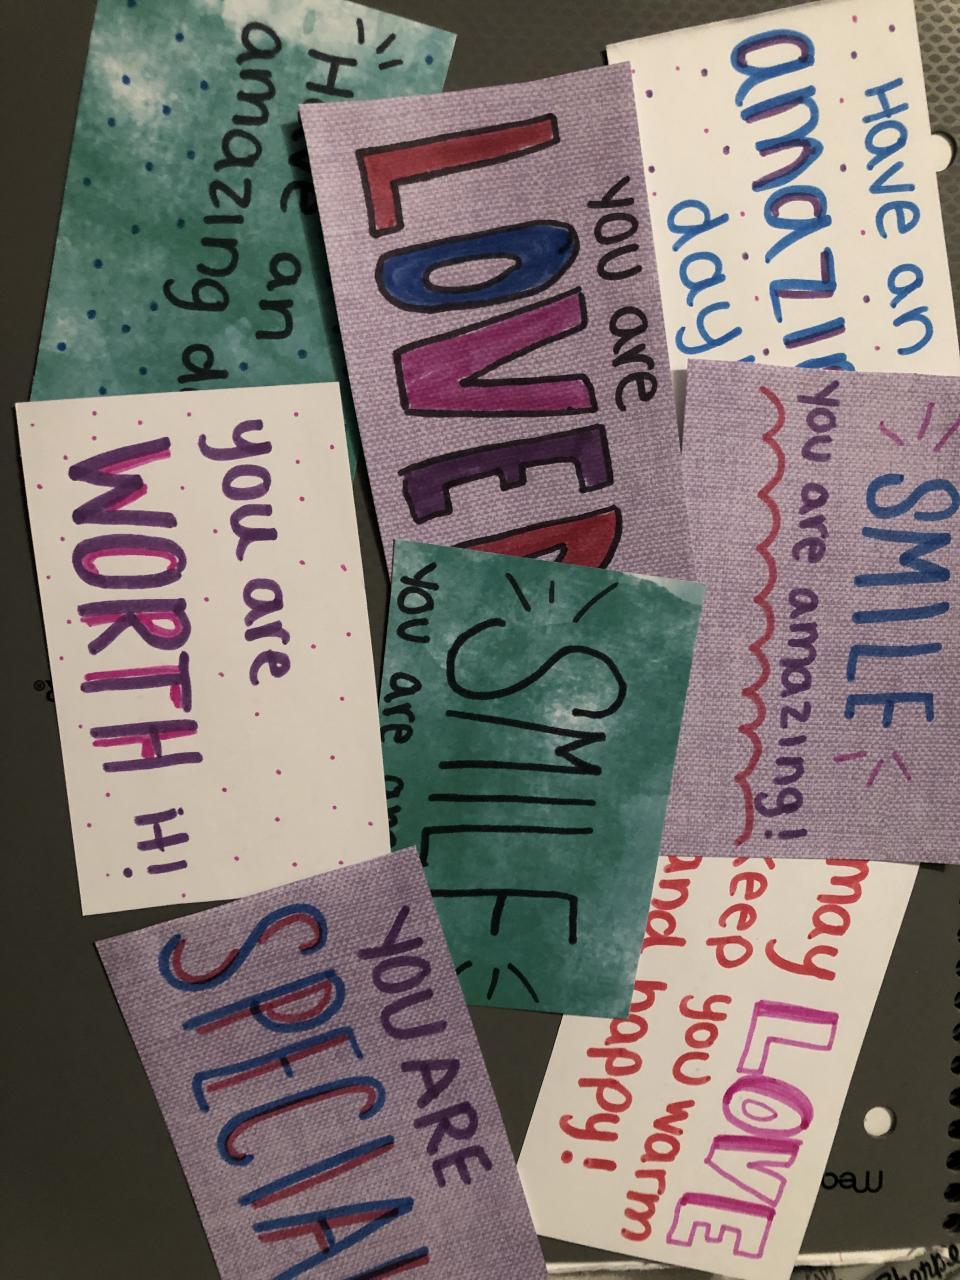 Have an
amazing
you are
LOVED
Have an
amazing
day
you are
WORTH it!
SMILE
you are amazing!
SMILE
you are
YOU ARE
SPECIAL
may LOVE
keep you warm
and happy!
mead